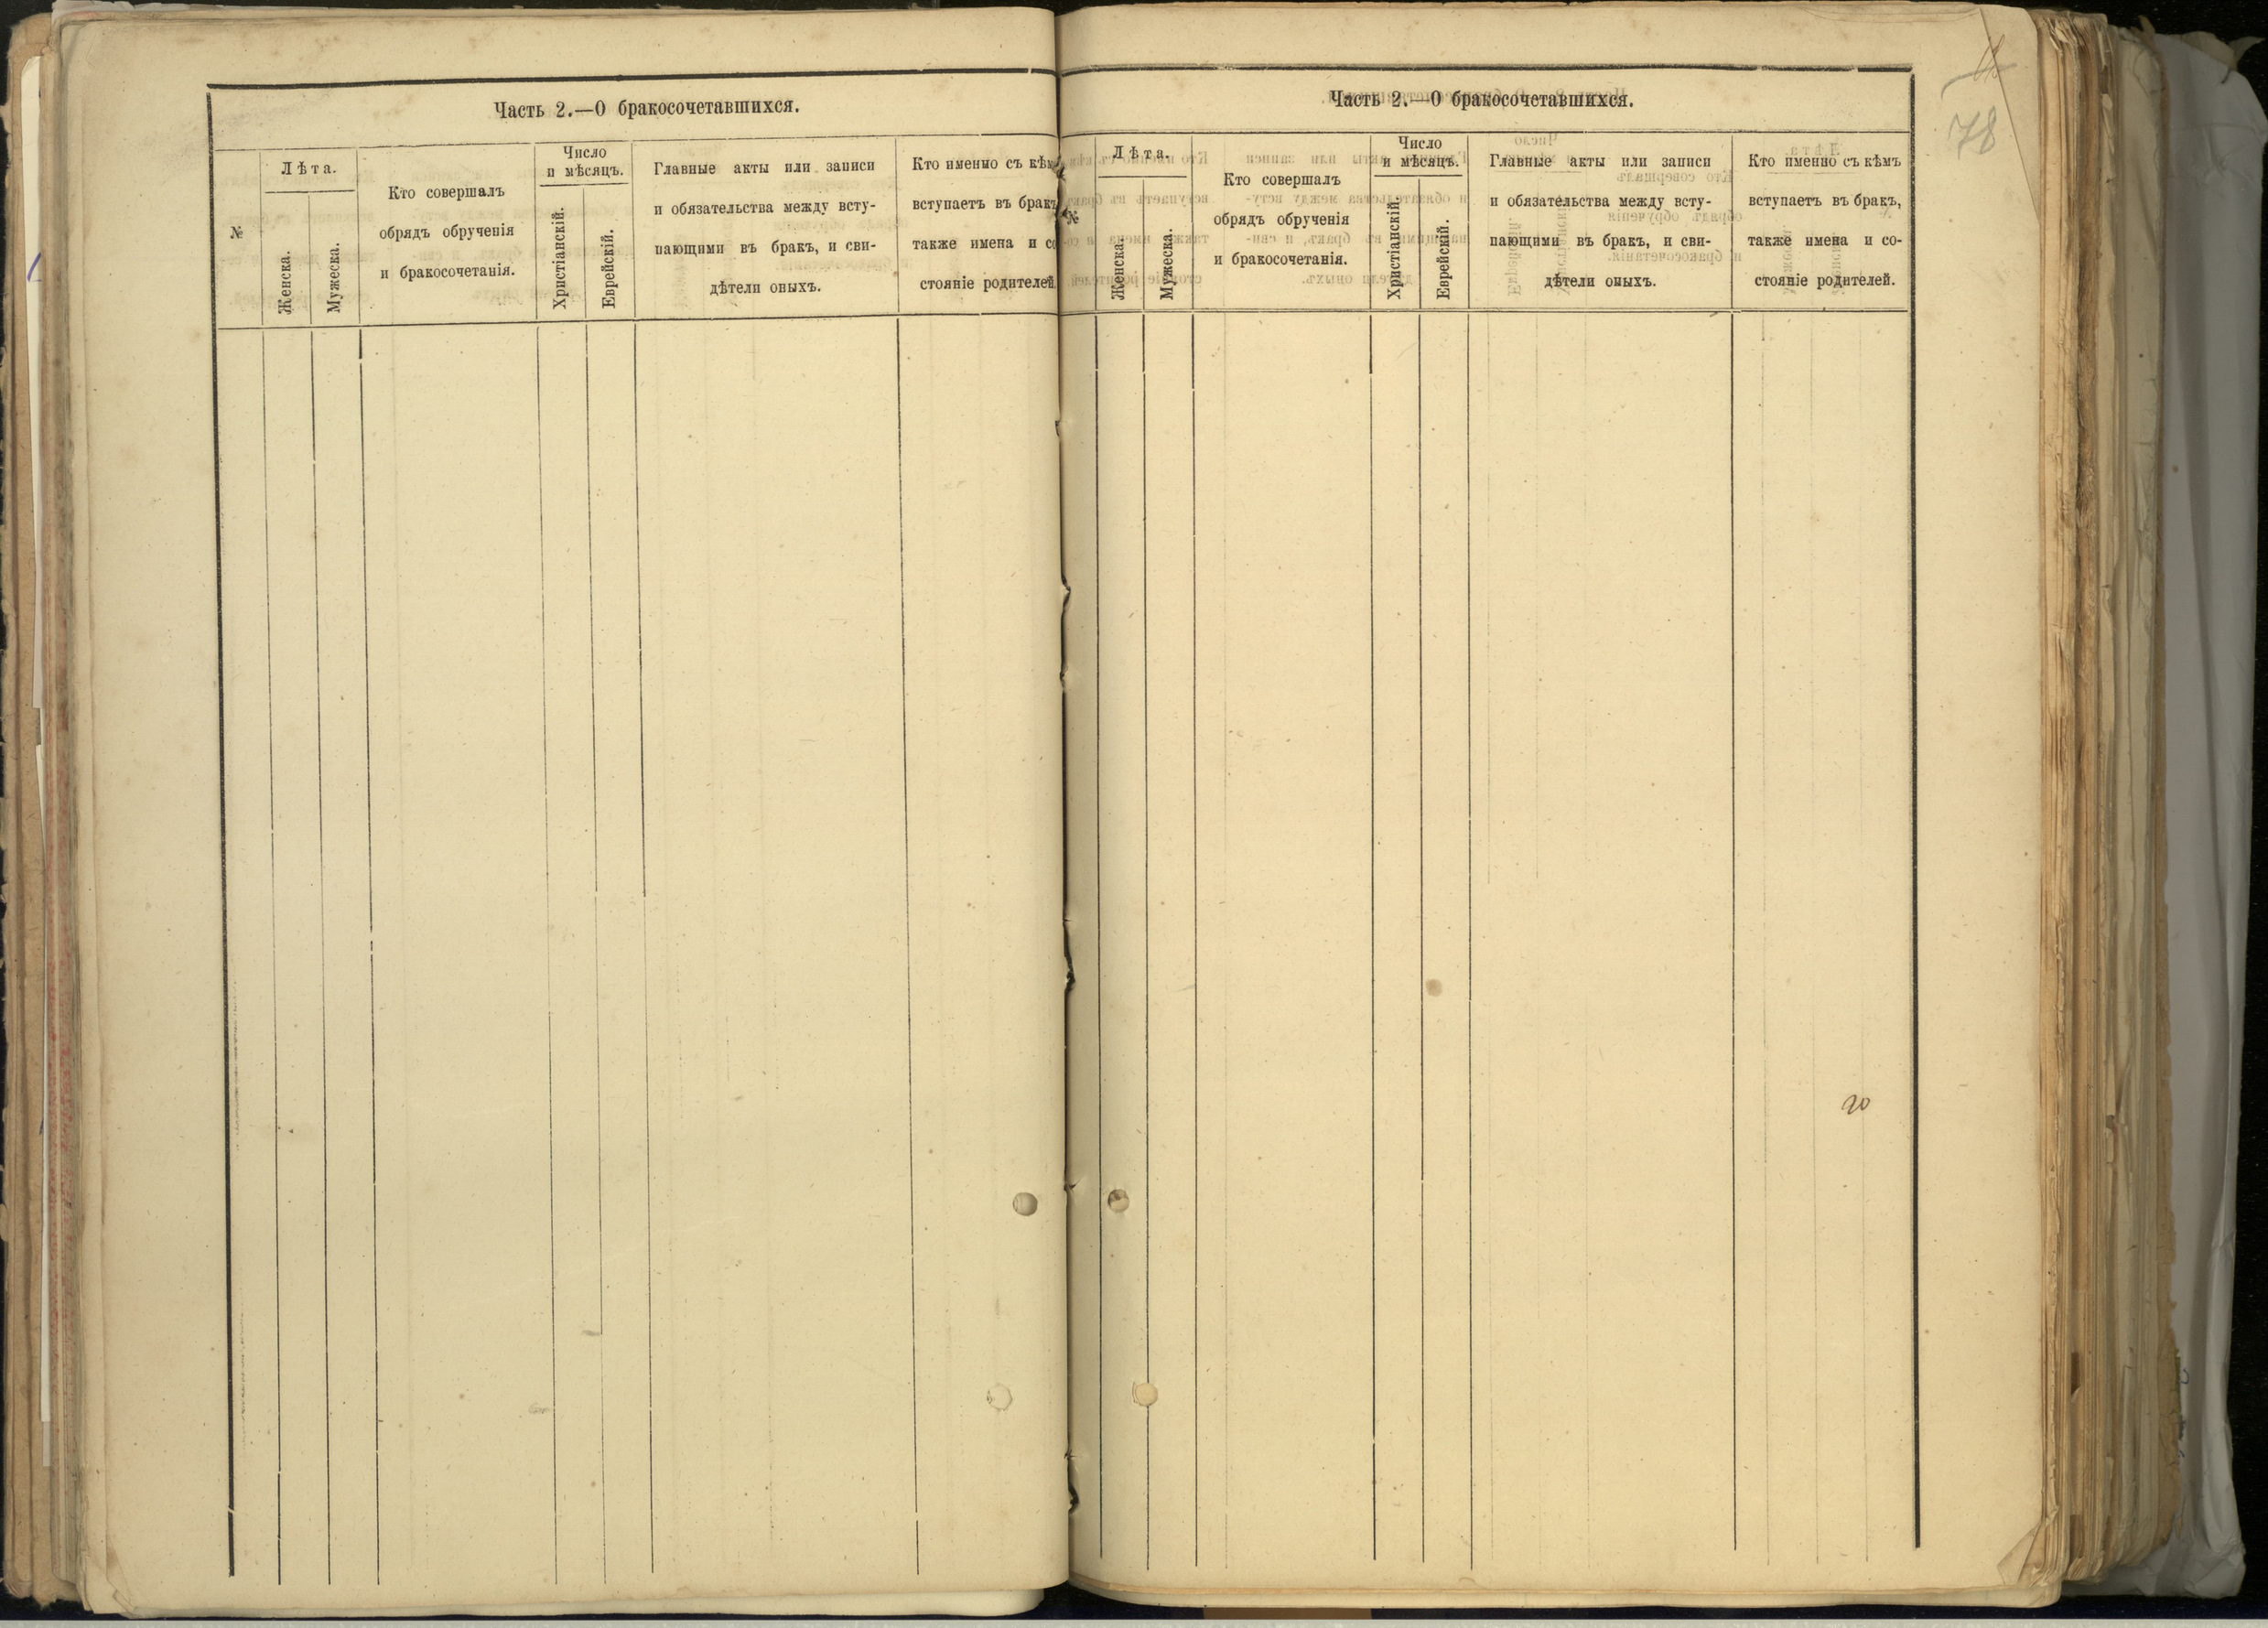 Часть 2.—О бракосочетавшихся.
№
Лѣта.
Женска.
Мужеска.
Кто совершалъ
обрядъ обрученія
и бракосочетанія.
Число
и мѣсяцъ.
Христіанскій.
Еврейскій.
Главные акты или записи
и обязательства между всту-
пающими въ бракъ, и сви-
дѣтели оныхъ.
Кто именно съ кѣм
вступаетъ въ бракъ
также имена и со
стояніе родителей
Часть 2.—О бракосочетавшихся.
78
№
Лѣта.
Женска.
Мужеска.
Кто совершалъ
обрядъ обрученія
и бракосочетанія.
Число
и мѣсяцъ.
Христіанскій
Еврейскій.
Главные акты или записи
и обязательства между всту-
пающими въ бракъ, и сви-
дѣтели оныхъ.
Кто именно съ кѣмъ
вступаетъ въ бракъ,
также имена и со-
стояніе родителей.
20